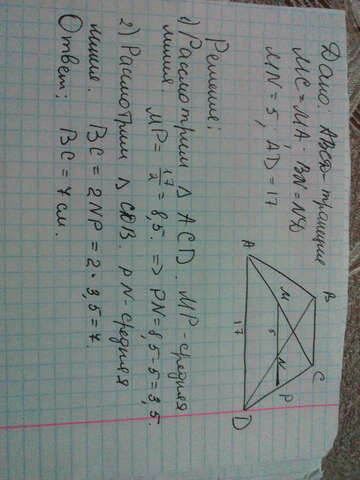 Дано: ABCD-трапеция
MC=MA; BN=ND
MN=5; AD=17
B
C
A
M
5
N
P
17
D
Решение:
1) Рассмотрим Δ ACD. MP-средняя
линия MP= 17/2 = 8,5. => PN=8,5-5=3,5.
2) Рассмотрим Δ CDB. PN-средняя
линия. BC=2NP=2·3,5=7.
Ответ: BC=7см.